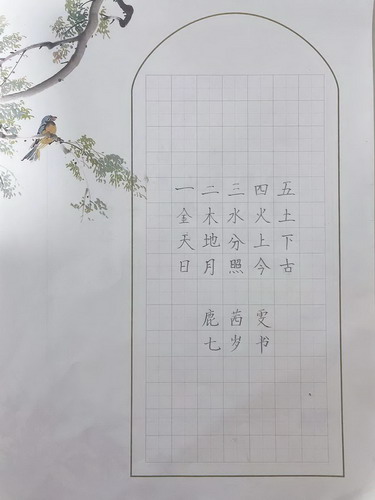 一二三四五
金木水火土
天地分上下
日月照今古
鹿茜雯
七岁书